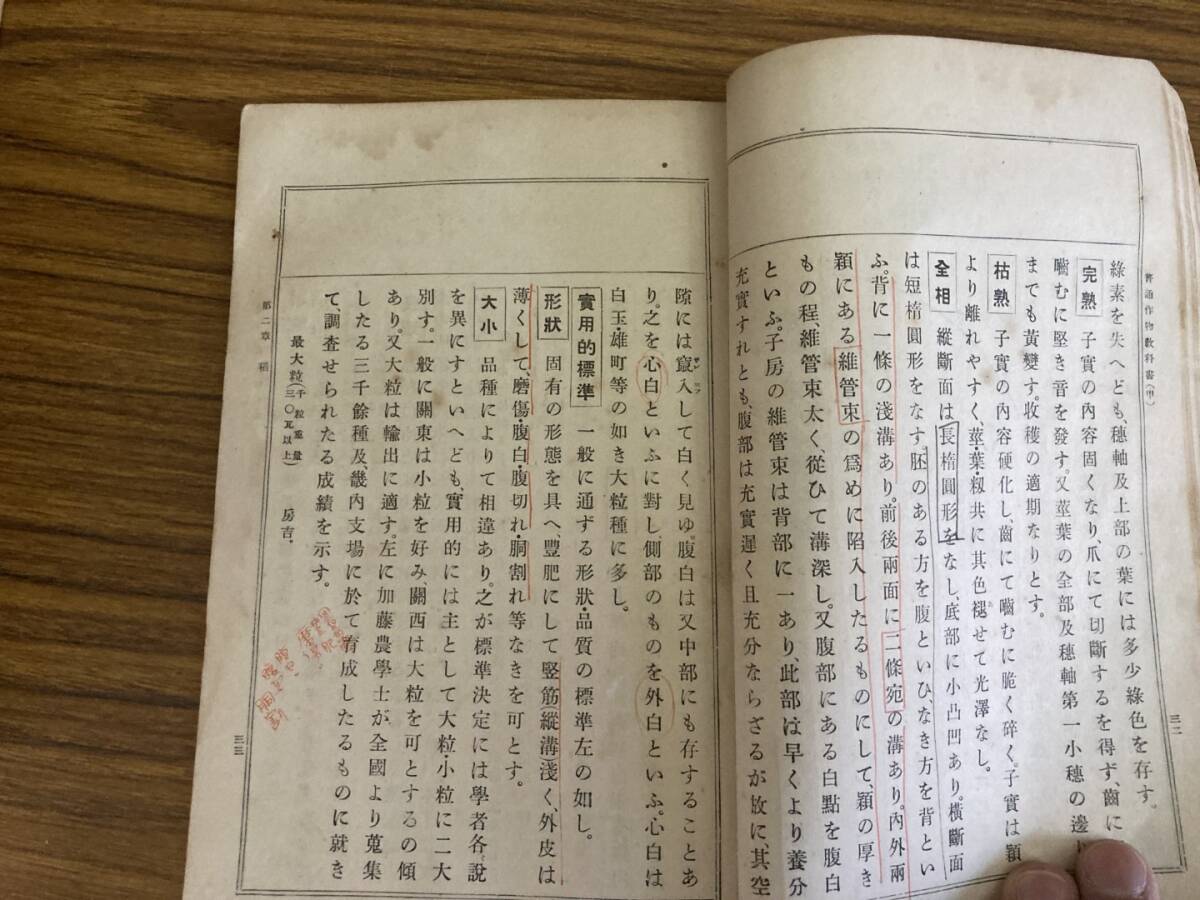 普通作物教科書(甲)
三二
綠素を失へども、穗軸及上部の葉には多少綠色を存す。
完熟 子實の內容固くなり、爪にて切斷するを得ず、齒に
嚙むに堅き音を發す。又莖葉の全部及穗軸第一小穗の邊
までも黃變す。收穫の適期なりとす。
枯熟 子實の內容硬化し、齒にて嚙むに脆く碎く。子實は穎
より離れやすく、莖・葉・籾共に其色褪せて光澤なし。
全相 縱斷面は長楕圓形をなし、底部に小凸凹あり。橫斷面
は短楕圓形をなす。胚のある方を腹といひ、なき方を背とい
ふ。背に一條の淺溝あり。前後兩面に二條宛の溝あり。內外兩
穎にある維管束の爲めに陷入したるものにして、穎の厚き
もの程、維管束太く、從ひて溝深し。又腹部にある白點を腹白
といふ。子房の維管束は背部に一あり、此部は早くより養分
充實すれとも、腹部は充實遲く且充分ならざるが故に、其空
隙には竄入して白く見ゆ。腹白は又中部にも存することあ
り。之を心白といふに對し、側部のものを外白といふ。心白は
白玉・雄町等の如き大粒種に多し。
實用的標準 一般に通ずる形狀・品質の標準左の如し。
形狀 固有の形態を具へ、豐肥にして竪筋(縱溝)淺く、外皮は
薄くして、磨傷・腹白・腹切れ・胴割れ等なきを可とす。
大小 品種によりて相違あり。之が標準決定には學者各說
を異にすといへども、實用的には主として大粒・小粒に二大
別す。一般に關東は小粒を好み、關西は大粒を可とするの傾
あり。又大粒は輸出に適す。左に加藤農學士が、全國より蒐集
したる三千餘種及、畿內支場に於て育成したるものに就き
て、調査せられたる成績を示す。
最大粒(千粒重量三〇瓦以上) 房吉.
第二章 稻
三三